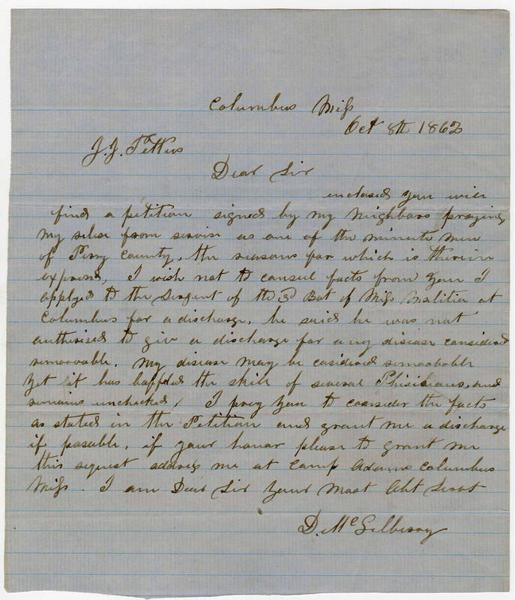 Columbus Miss
Oct 8th 1862
J. J. Pettus
Dear Sir
enclosed you will
find a petition signed by my neighbors praying
my release from servis as one of the minute men
of Perry County, the reasons for which is therein
expresed, I wish not to consel facts from you I
applyed to the Surgent of the 3 Bat of Miss Malitia at
Columbus for a discharge, he said he was not
authorised to give a discharge for any disease considired
removable. My disease may be casidired removable
yet it has baffled the skill of several Phisicians, and
remains unchecked, I pray you to consider the facts
as stated in the Petition and grant me a discharge
if posable, if your honor please to grant me
this request address me at Camp Adams Columbus
Miss. I am Dear Sir your Most Obt Servt
D. McGilberry